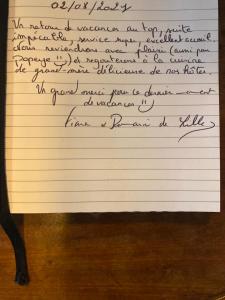 02/08/2021
Un retour de vacances au top, suite
impécable, service super, excellent accueil.
Nous reviendrons avec plaisir (aussi pour
Popeye !!) et regouterons à la cuisine
de grand-mère délicieuse de nos hôtes.
Un grand merci pour ce dernier moment
de vacances !!
& Romain de Lille